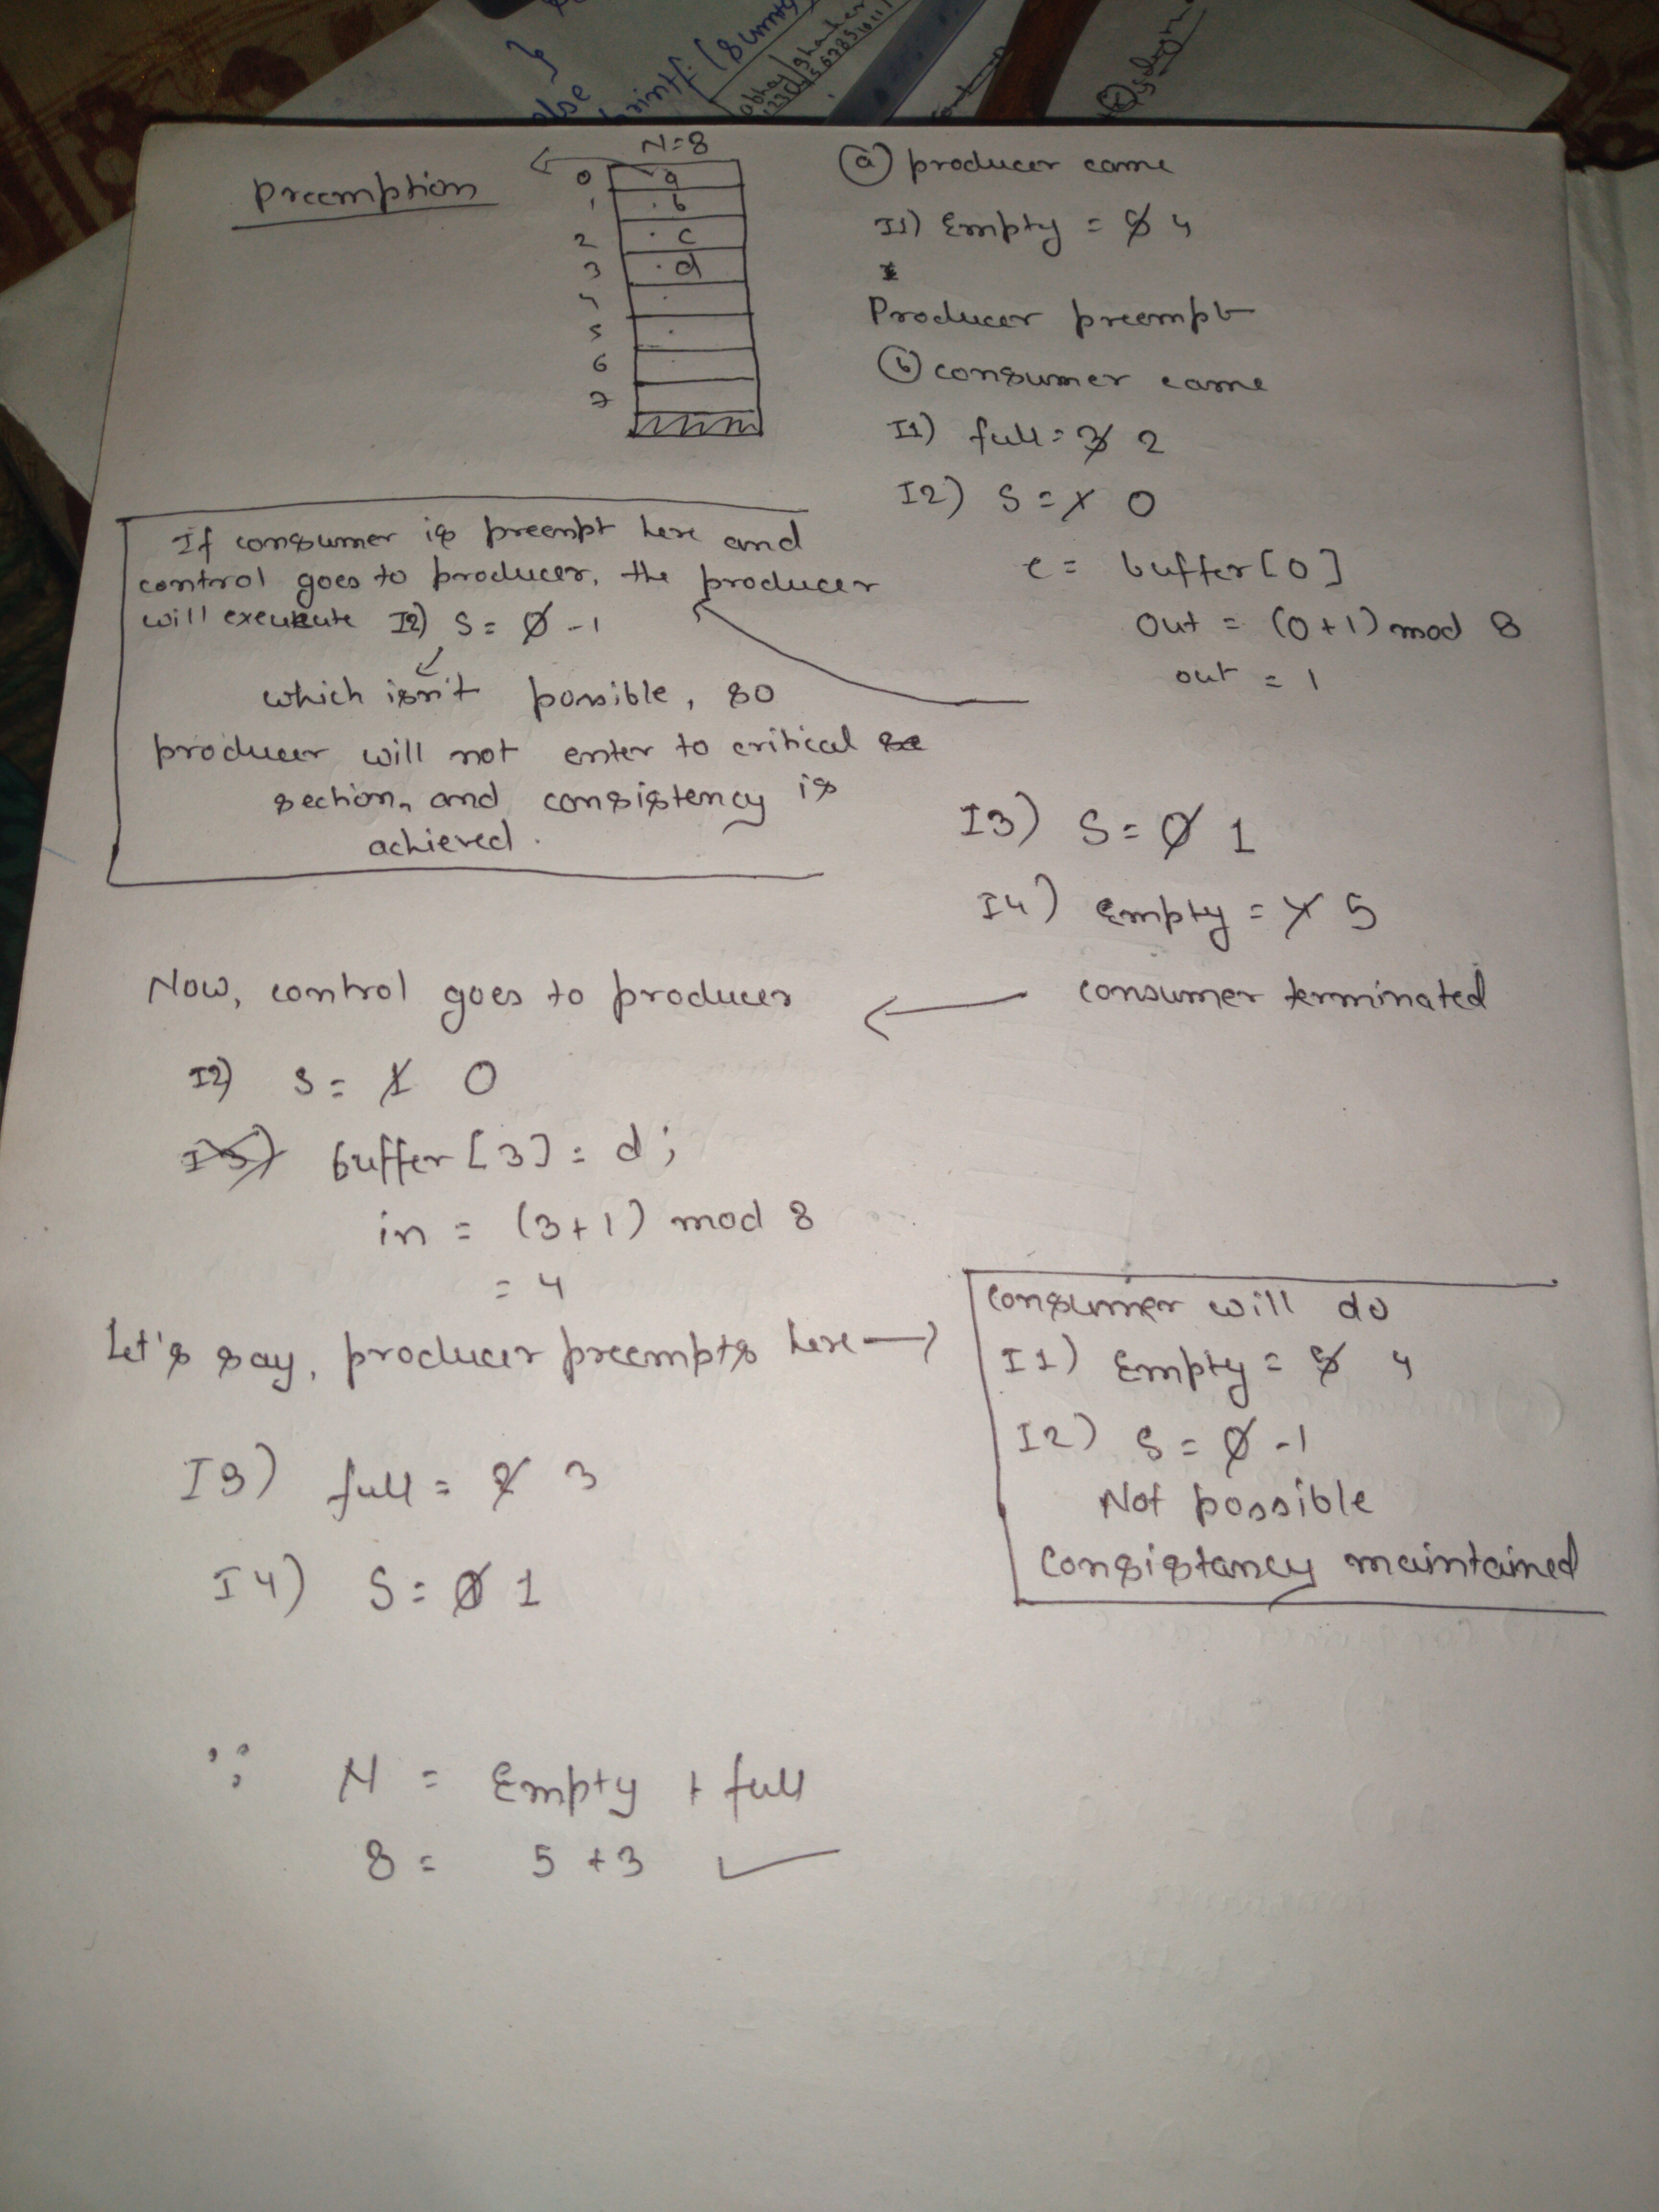 else
printf(
N=8
Preemption
0 a
1 b
2 c
3 d
4
5
6
7
(a) producer came
I1) Empty = 5 4
Producer preempt
(b) consumer came
I1) full = 3 2
I2) S = 1 0
c = buffer[0]
out = (0+1) mod 8
out = 1
If consumer is preempt here and
control goes to producer, the producer
will exeukute I2) S = 0 -1
which isn't possible, so
producer will not enter to critical se
section, and consistency is
achieved.
I3) S = 0 1
I4) Empty = 4 5
consumer terminated
Now, control goes to producer
I2) S = 1 0
I3) buffer[3] = d;
in = (3+1) mod 8
= 4
Let's say, producer preempts here →
Consumer will do
I1) Empty = 5 4
I2) S = 0 -1
Not possible
Consistancy maintained
I3) full = 2 3
I4) S = 0 1
∵ N = Empty + full
8 = 5 + 3 ✓